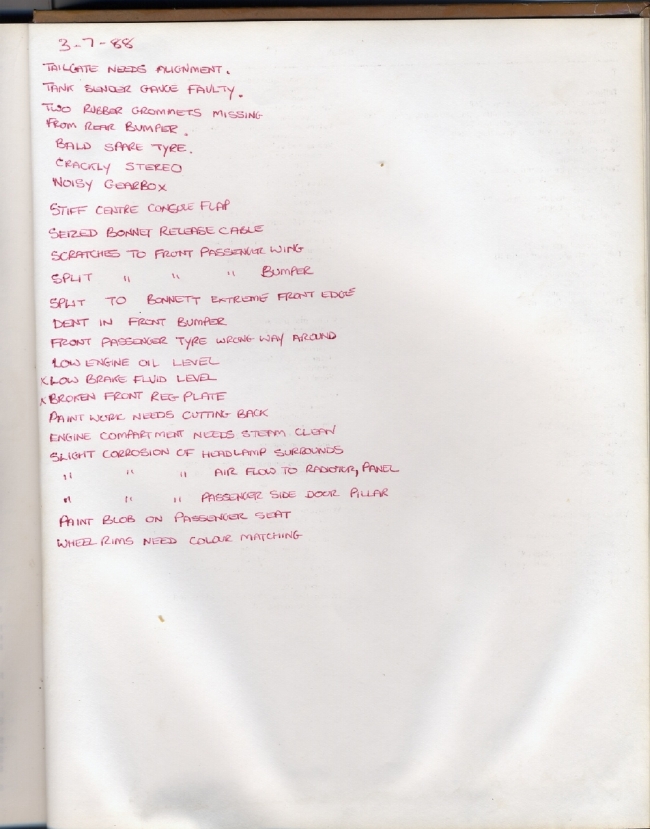 3-7-88
TAILGATE NEEDS ALIGNMENT.
TANK SENDER GAUGE FAULTY.
TWO RUBBER GROMMETS MISSING
FROM REAR BUMPER.
BALD SPARE TYRE.
CRACKLY STEREO
NOISY GEARBOX
STIFF CENTRE CONSOLE FLAP
SEIZED BONNET RELEASE CABLE
SCRATCHES TO FRONT PASSENGER WING
SPLIT " " " BUMPER
SPLIT TO BONNETT EXTREME FRONT EDGE
DENT IN FRONT BUMPER
FRONT PASSENGER TYRE WRONG WAY AROUND
LOW ENGINE OIL LEVEL
x LOW BRAKE FLUID LEVEL
x BROKEN FRONT REG PLATE
PAINT WORK NEEDS CUTTING BACK
ENGINE COMPARTMENT NEEDS STEAM CLEAN
SLIGHT CORROSION OF HEADLAMP SURROUNDS
" " " AIR FLOW TO RADIATOR, PANEL
" " " PASSENGER SIDE DOOR PILLAR
PAINT BLOB ON PASSENGER SEAT
WHEEL RIMS NEED COLOUR MATCHING